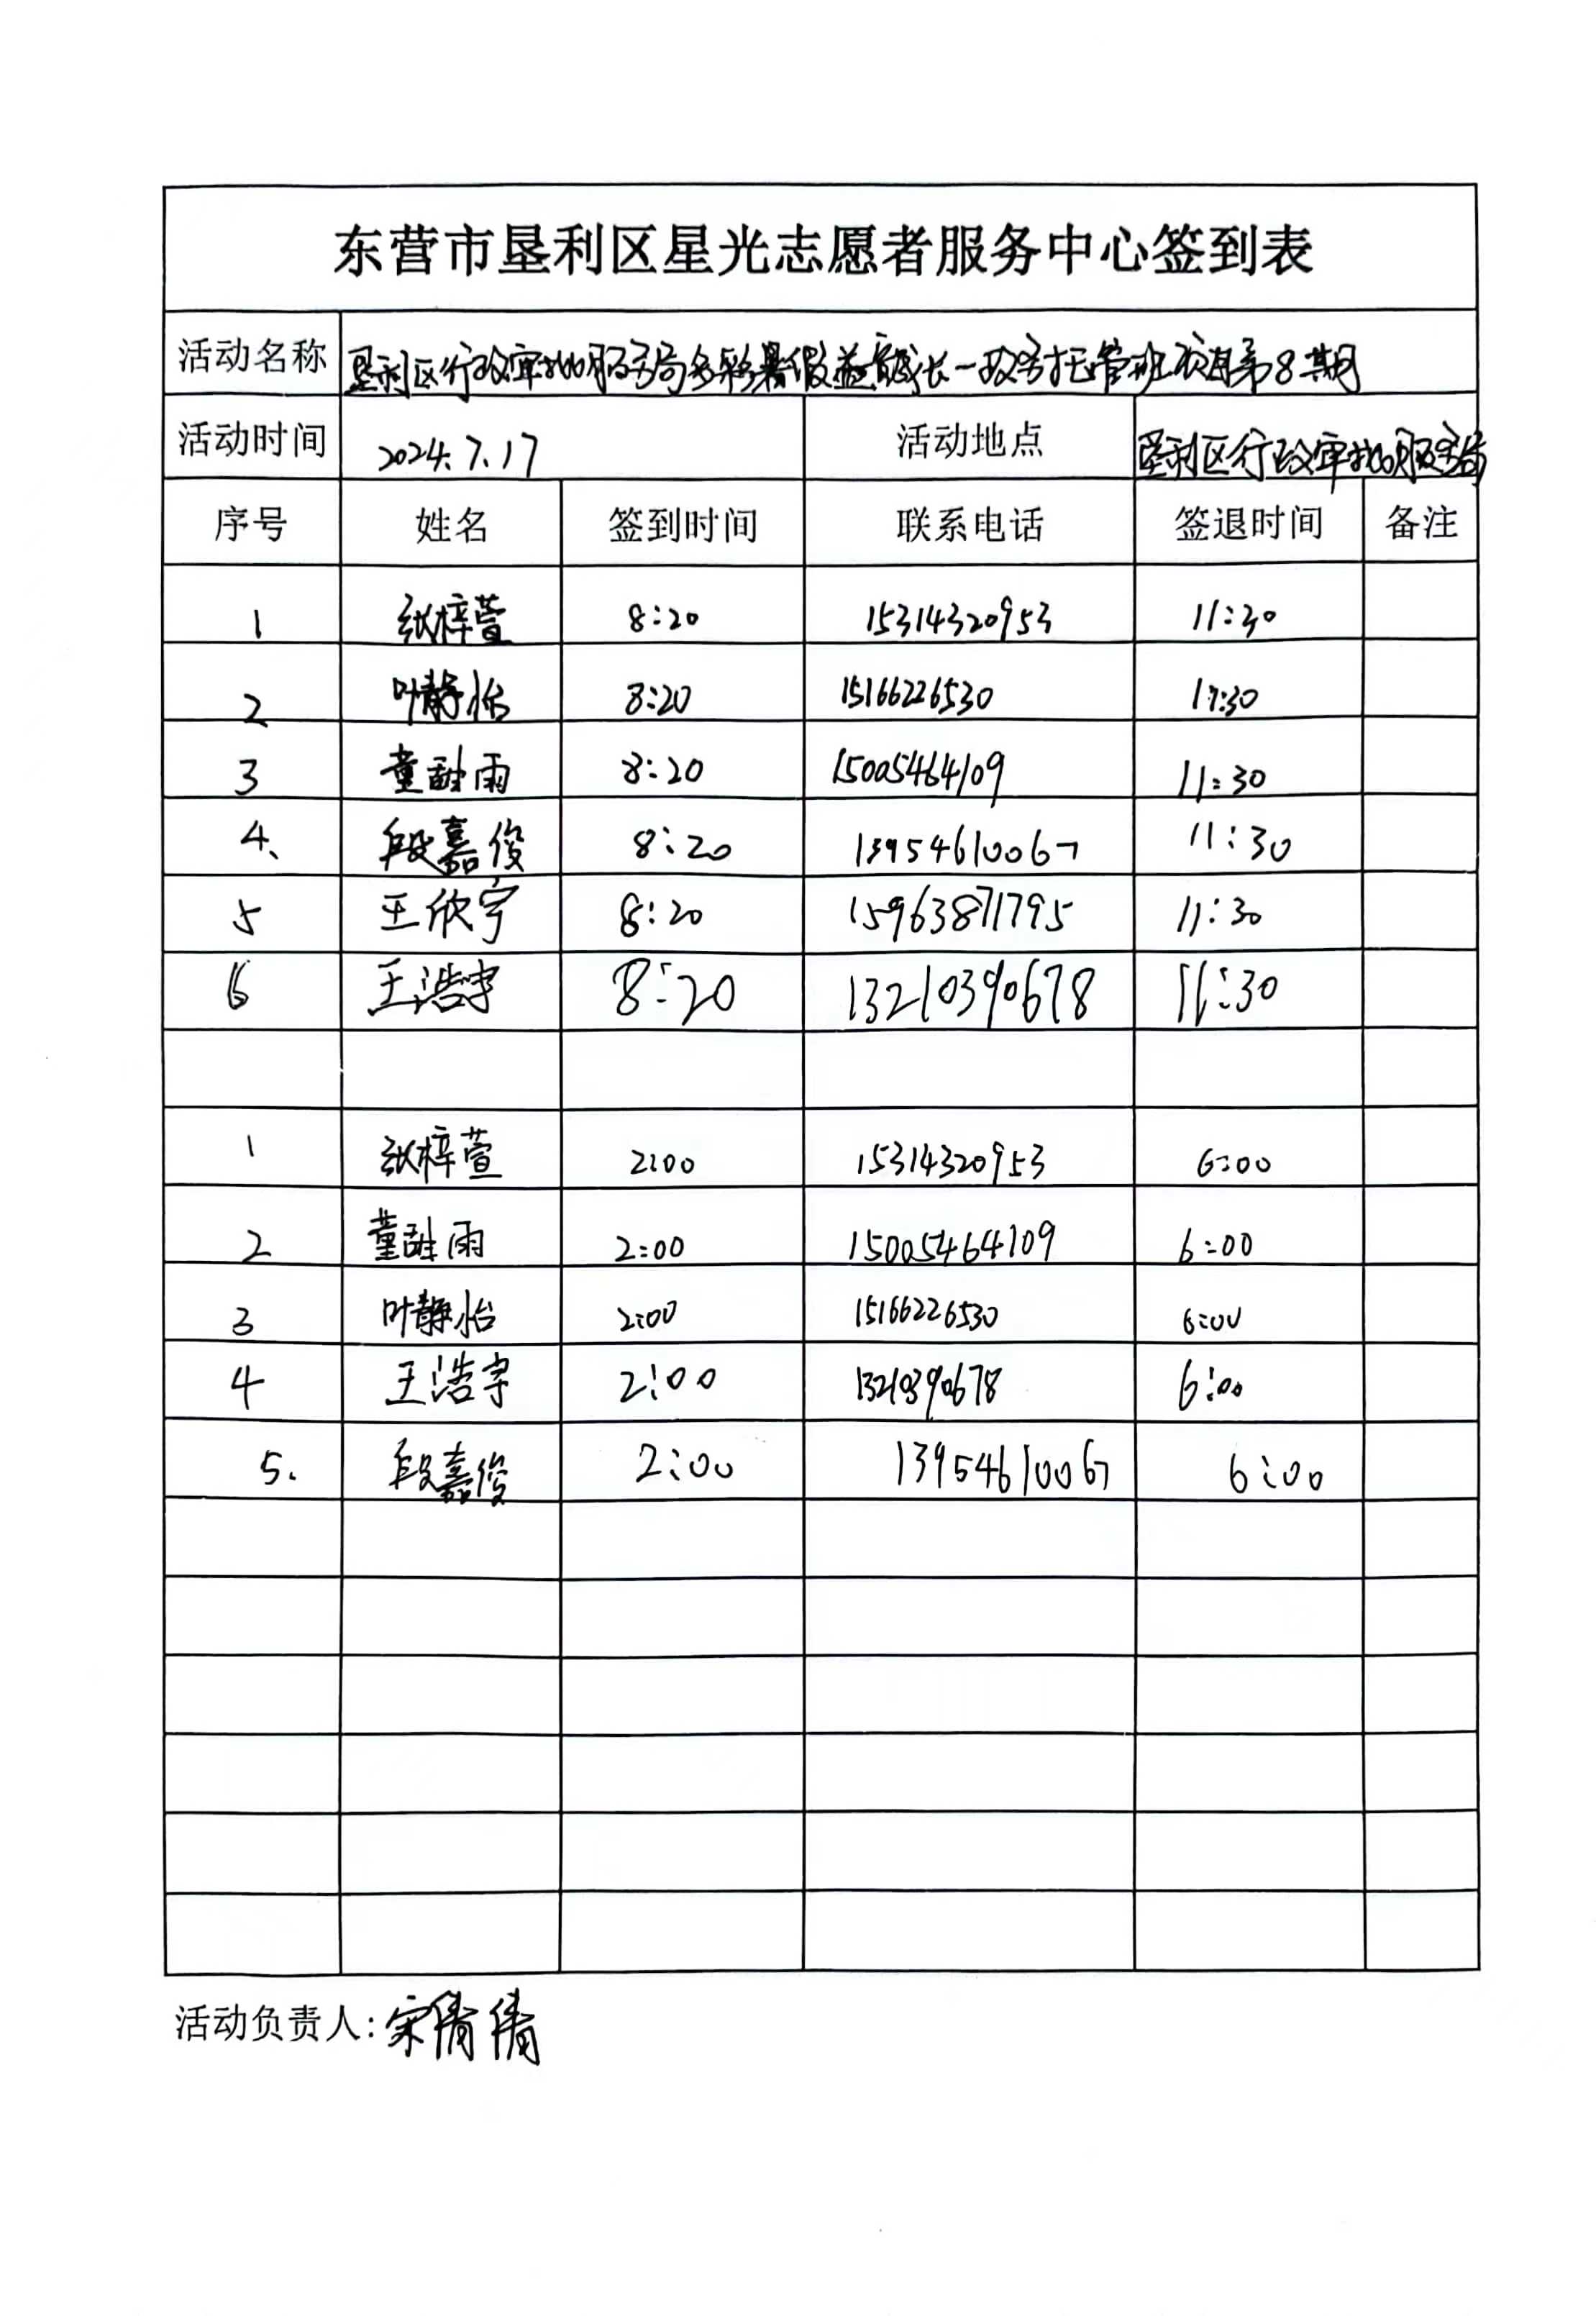 东营市垦利区星光志愿者服务中心签到表
活动名称 垦利区行政审批服务局多彩暑假益童成长—政务托管班项目第8期
活动时间 2024.7.17 活动地点 垦利区行政审批服务局
序号 姓名 签到时间 联系电话 签退时间 备注
1 张梓萱 8:20 15314320953 11:30
2 叶静怡 8:20 15166226530 11:30
3 董甜雨 8:20 15005464109 11:30
4、 段嘉俊 8:20 13954610067 11:30
5 王欣宇 8:20 15963871795 11:30
6 王浩宇 8:20 13210390678 11:30
1 张梓萱 2:00 15314320953 6:00
2 董甜雨 2:00 15005464109 6:00
3 叶静怡 2:00 15166226530 6:00
4 王浩宇 2:00 13210390678 6:00
5. 段嘉俊 2:00 13954610067 6:00
活动负责人:宋倩倩